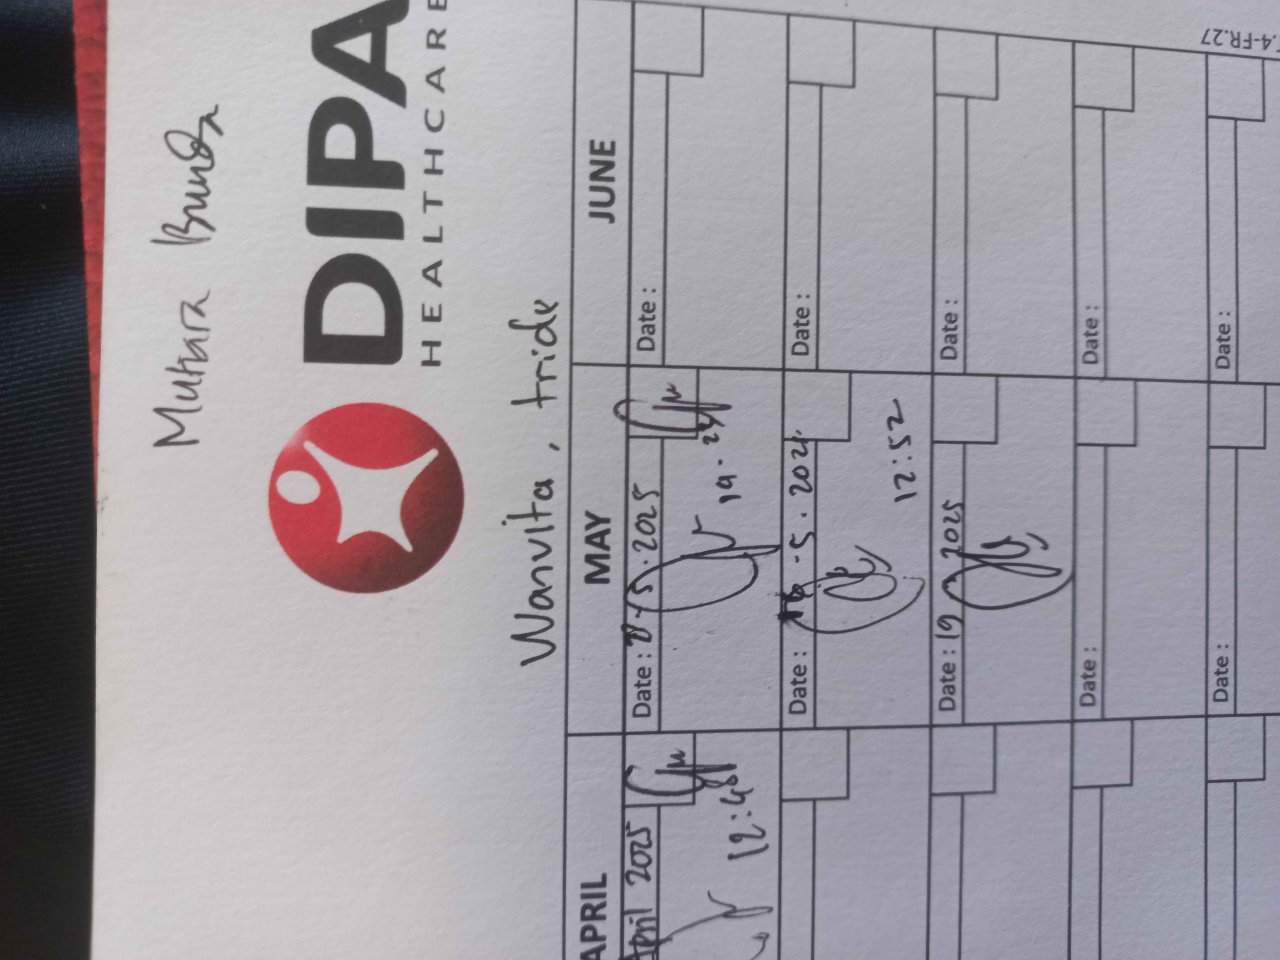 Mutiara Bunda
DIPA
HEALTHCARE
Wanvita, tride
APRIL MAY JUNE
April 2025 Date: 8-5.2025 Date:
12:48
Date: -5.2025 Date:
12:52
Date: 19 2025 Date:
Date: Date:
Date: Date:
4-FR.27